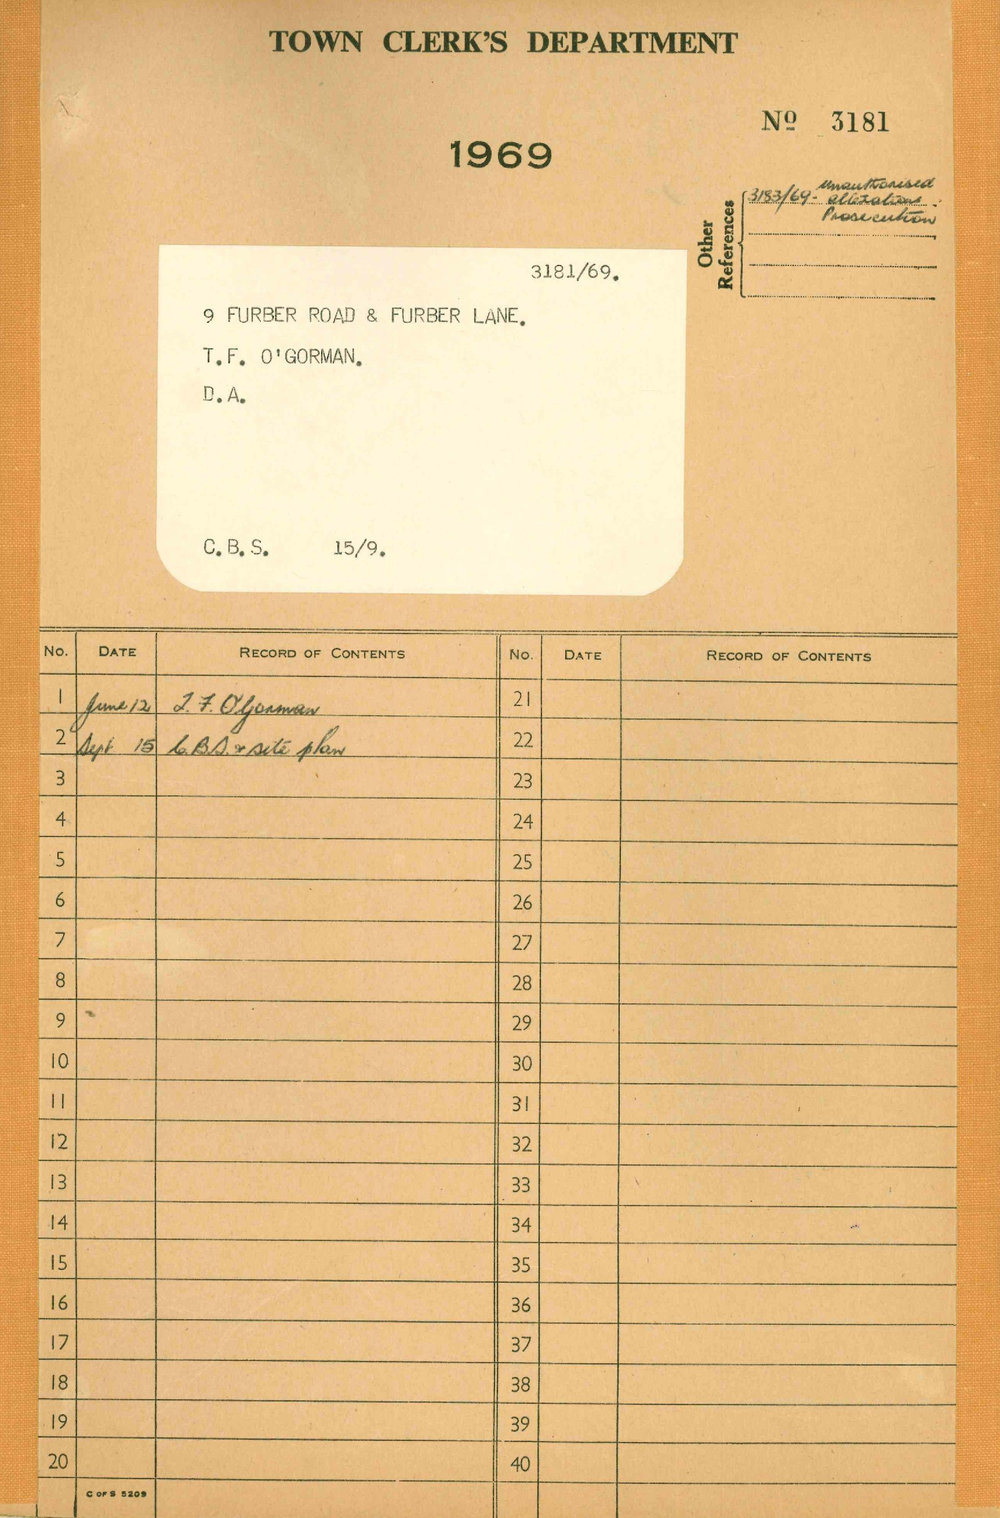 TOWN CLERK'S DEPARTMENT
Nº 3181
1969
Other References
3183/69- unauthorised
alterations.
Prosecution
3181/69.
9 FURBER ROAD & FURBER LANE.
T.F. O'GORMAN.
D.A.
C.B.S. 15/9.
No. DATE RECORD OF CONTENTS No. DATE RECORD OF CONTENTS
1 June 12 T. F. O'Gorman 21
2 Sept 15 C.B.S. & site plan 22
3 23
4 24
5 25
6 26
7 27
8 28
9 29
10 30
11 31
12 32
13 33
14 34
15 35
16 36
17 37
18 38
19 39
20 40
C OF S 5209